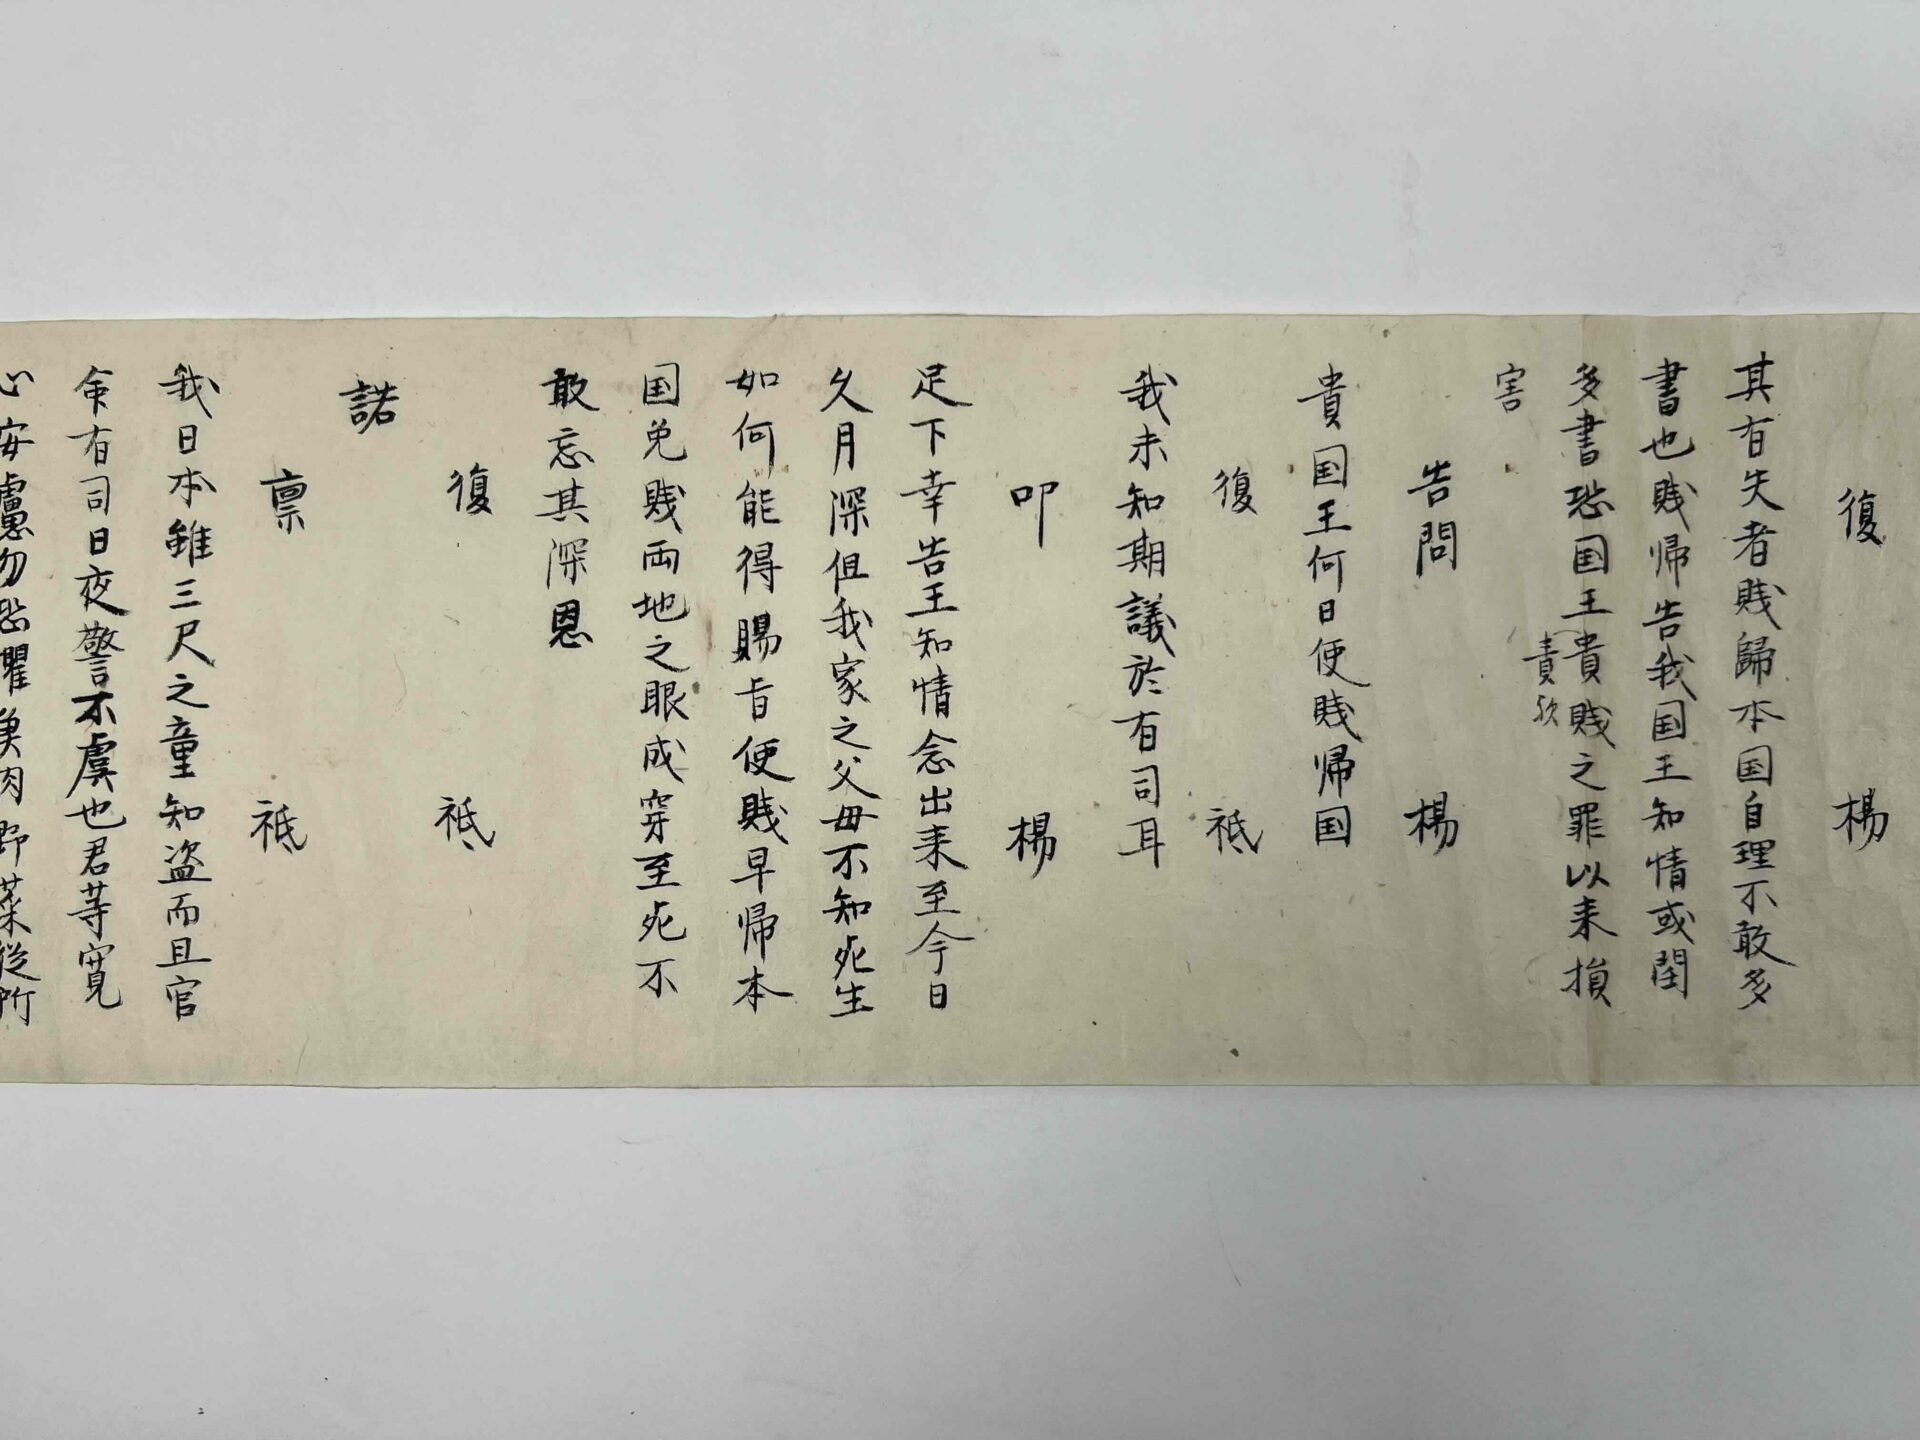 復　楊
其有失者賎歸本国自理不敢多
書也賎帰告我国王知情或閏
多書恐国王貴賎之罪以来損
責欤
害
告問　楊
貴国王何日使賎帰国
復　祗
我未知期議於有司耳
叩　楊
足下幸告王知情念出来至今日
久月深但我家之父母不知死生
如何能得賜旨使賎早帰本
国免賎両地之眼成穿至死不
敢忘其深恩
復　祗
諾
稟　祗
我日本雖三尺之童知盗而且官
有司日夜警不虞也君等寛
心安慮勿恐懼 肉野菜従所